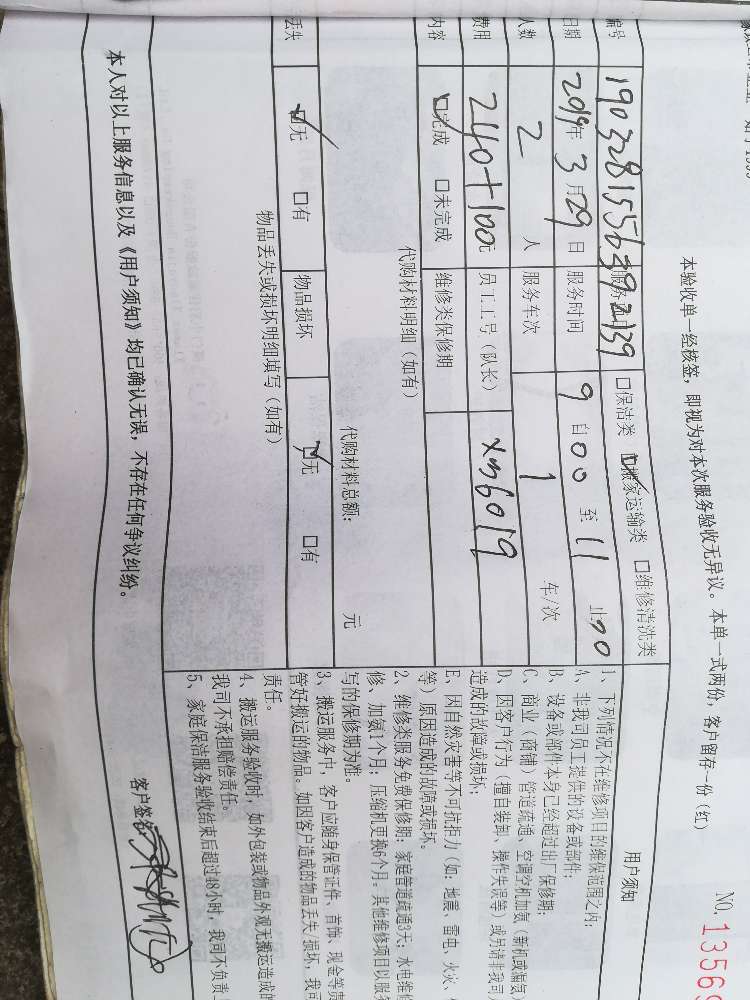 本验收单一经核签，即视为对本次服务验收无异议。本单一式两份，客户留存一份（红）
NO. 13569
编号 1903281556392139 □保洁类 ☑搬家运输类 □维修清洗类
日期 2019年3月29日 服务时间 9自00至11止00
人数 2人 服务车次 1 车/次
费用 240+100元 员工工号（队长） xm6019
内容 ☑完成 □未完成 维修类保修期
代购材料明细（如有）
代购材料总额： 元
丢失 ☑无 □有 物品损坏 ☑无 □有
物品丢失或损坏明细填写（如有）
用户须知
1、下列情况不在维修项目的维保范围之内：
A、非我司员工提供的设备或部件；
B、设备或部件本身已经超过出厂保修期；
C、商业（商铺）管道疏通、空调空机加氨（新机或漏氨）
D、因客户行为（擅自装卸、操作失误等）或另请非我司
造成的故障或损坏；
E、因自然灾害等不可抗拒力（如：地震、雷电、火灾、
等）原因造成的故障或损坏。
2、维修类服务免费保修期：家庭管道疏通3天；水电维修
修、加氨1个月；压缩机更换6个月。其他维修项目以服务
写的保修期为准。
3、搬运服务中，客户应随身保管证件、首饰、现金等贵
管好搬运的物品。如因客户造成的物品丢失、损坏，我司
责任。
4、搬运服务验收时，如外包装或物品外观无搬运造成的
我司不承担赔偿责任。
5、家庭保洁服务验收结束后超过48小时，我司不负责
本人对以上服务信息以及《用户须知》均已确认无误，不存在任何争议纠纷。
客户签名